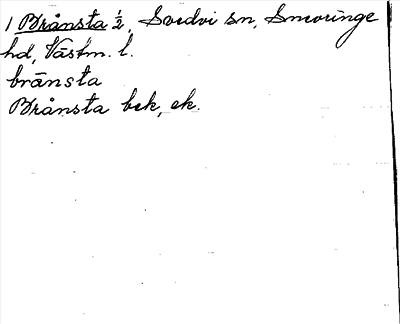 1 Brånsta ½, Svedvi sn, Snevringe
hd, Västm. l.
brånsta
Brånsta bek, ek.